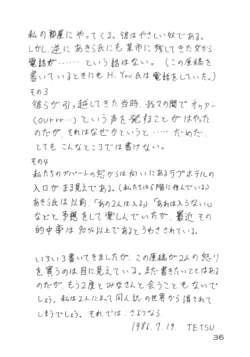 私の部屋にやってくる。彼はやさしい奴である。
しかし、逆にあきら氏にも某市に残してきた女から
電話が……という話はない。(この原稿を
書いているときにもH.You氏は電話をしていた。)
その3
彼らが引っ越してきた当時、我々の間でオゥアー
(ourrr…)という声を発することがはやった
のだが、それはなぜかというと…… だめだ、
とてもこんなところでは書けない。
その4
私たちのアパートの窓からは向いにあるラブホテルの
入口がまる見えである。(私たちは6階に住んでいる)
あきら氏は以前、「あの2人は入る」「あれは入らない」
などと予想をして楽しんでいたが、最近その
的中率は90%以上であるとうわさされている。
いろいろ書いてきましたが、この原稿が2人の怒り
を買うのは目に見えている。まだ書きたいことはある
のだが、もう2度とみなさんと会うこともないで
しょう。私は2人によって同人誌の世界から消されて
しまうでしょう。それでは、さようなら
1986.7.19. TETSU
36